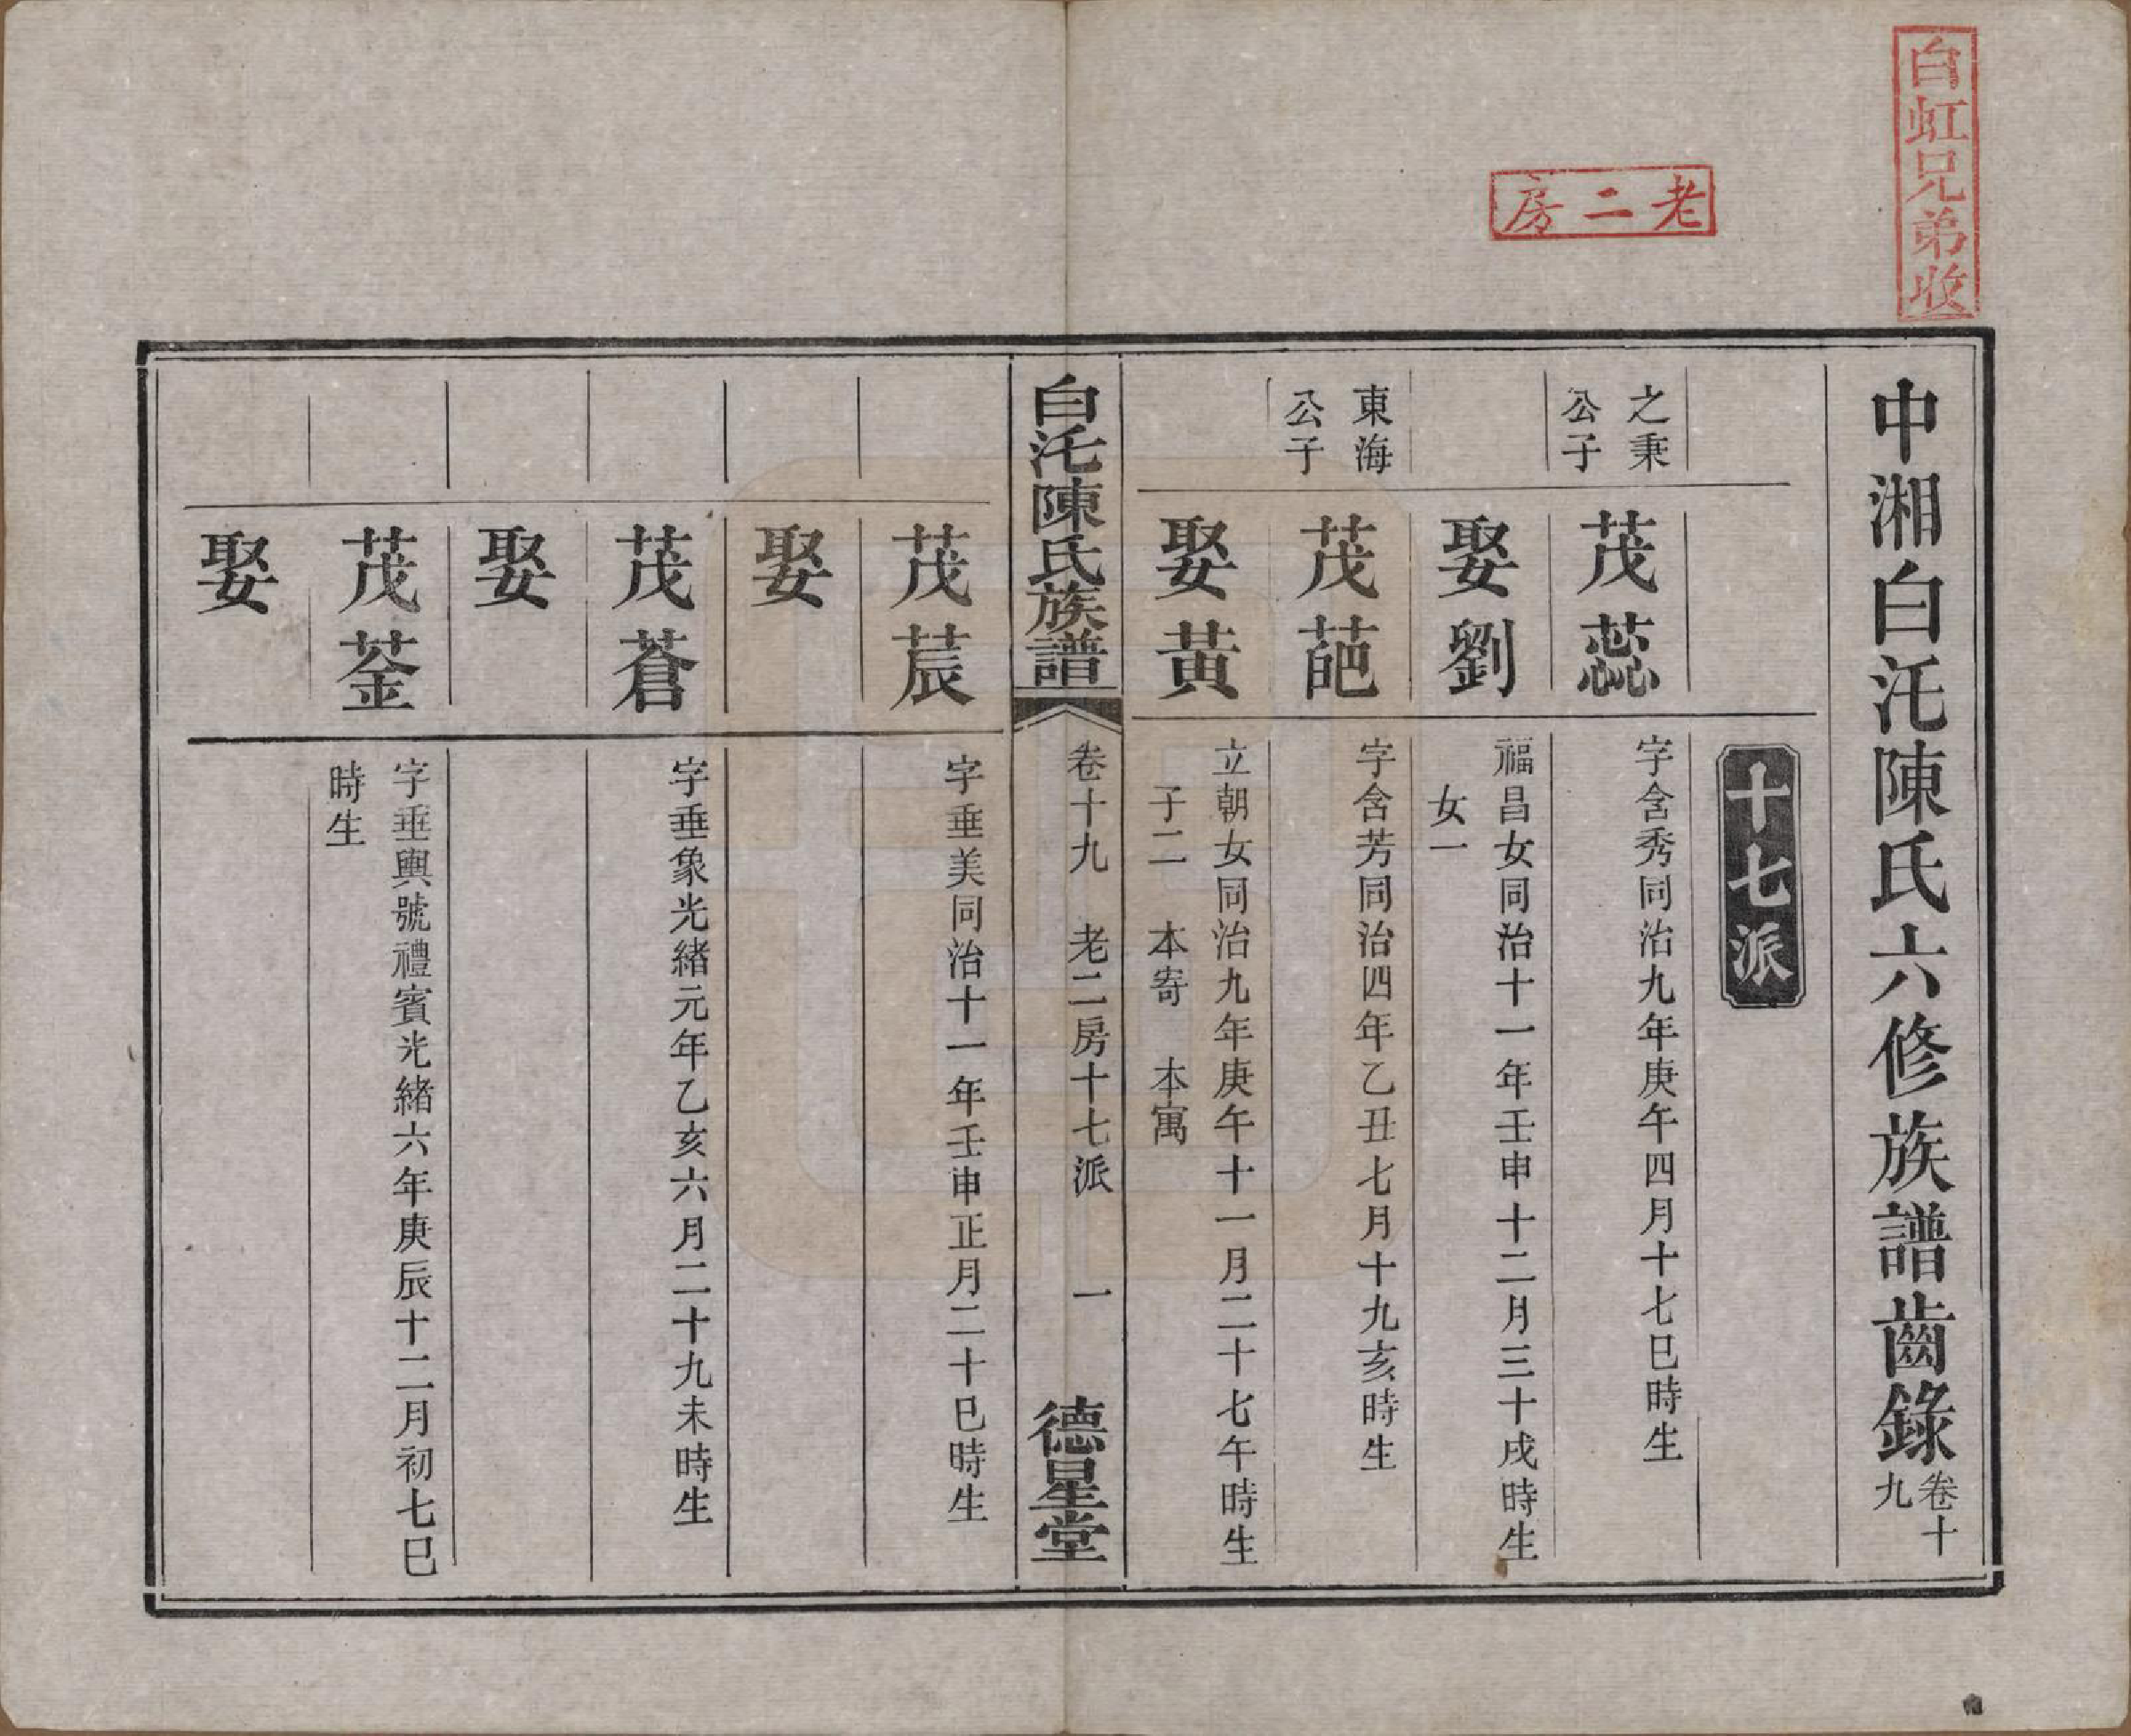 白虹兄弟收
老二房
中湘白汑陳氏六修族譜齒錄卷十九
十七派
之秉公子
茂蕊
字含秀同治九年庚午四月十七巳時生
娶劉
福昌女同治十一年壬申十二月三十戌時生
女一
東海公子
茂葩
字含芳同治四年乙丑七月十九亥時生
娶黃
立朝女同治九年庚午十一月二十七午時生
子二 本寄 本寓
白汑陳氏族譜
卷十九 老二房十七派 一
德星堂
茂莀
字垂美同治十一年壬申正月二十巳時生
娶
茂蒼
字垂象光緒元年乙亥六月二十九未時生
娶
茂荃
字垂輿號禮賓光緒六年庚辰十二月初七巳
時生
娶